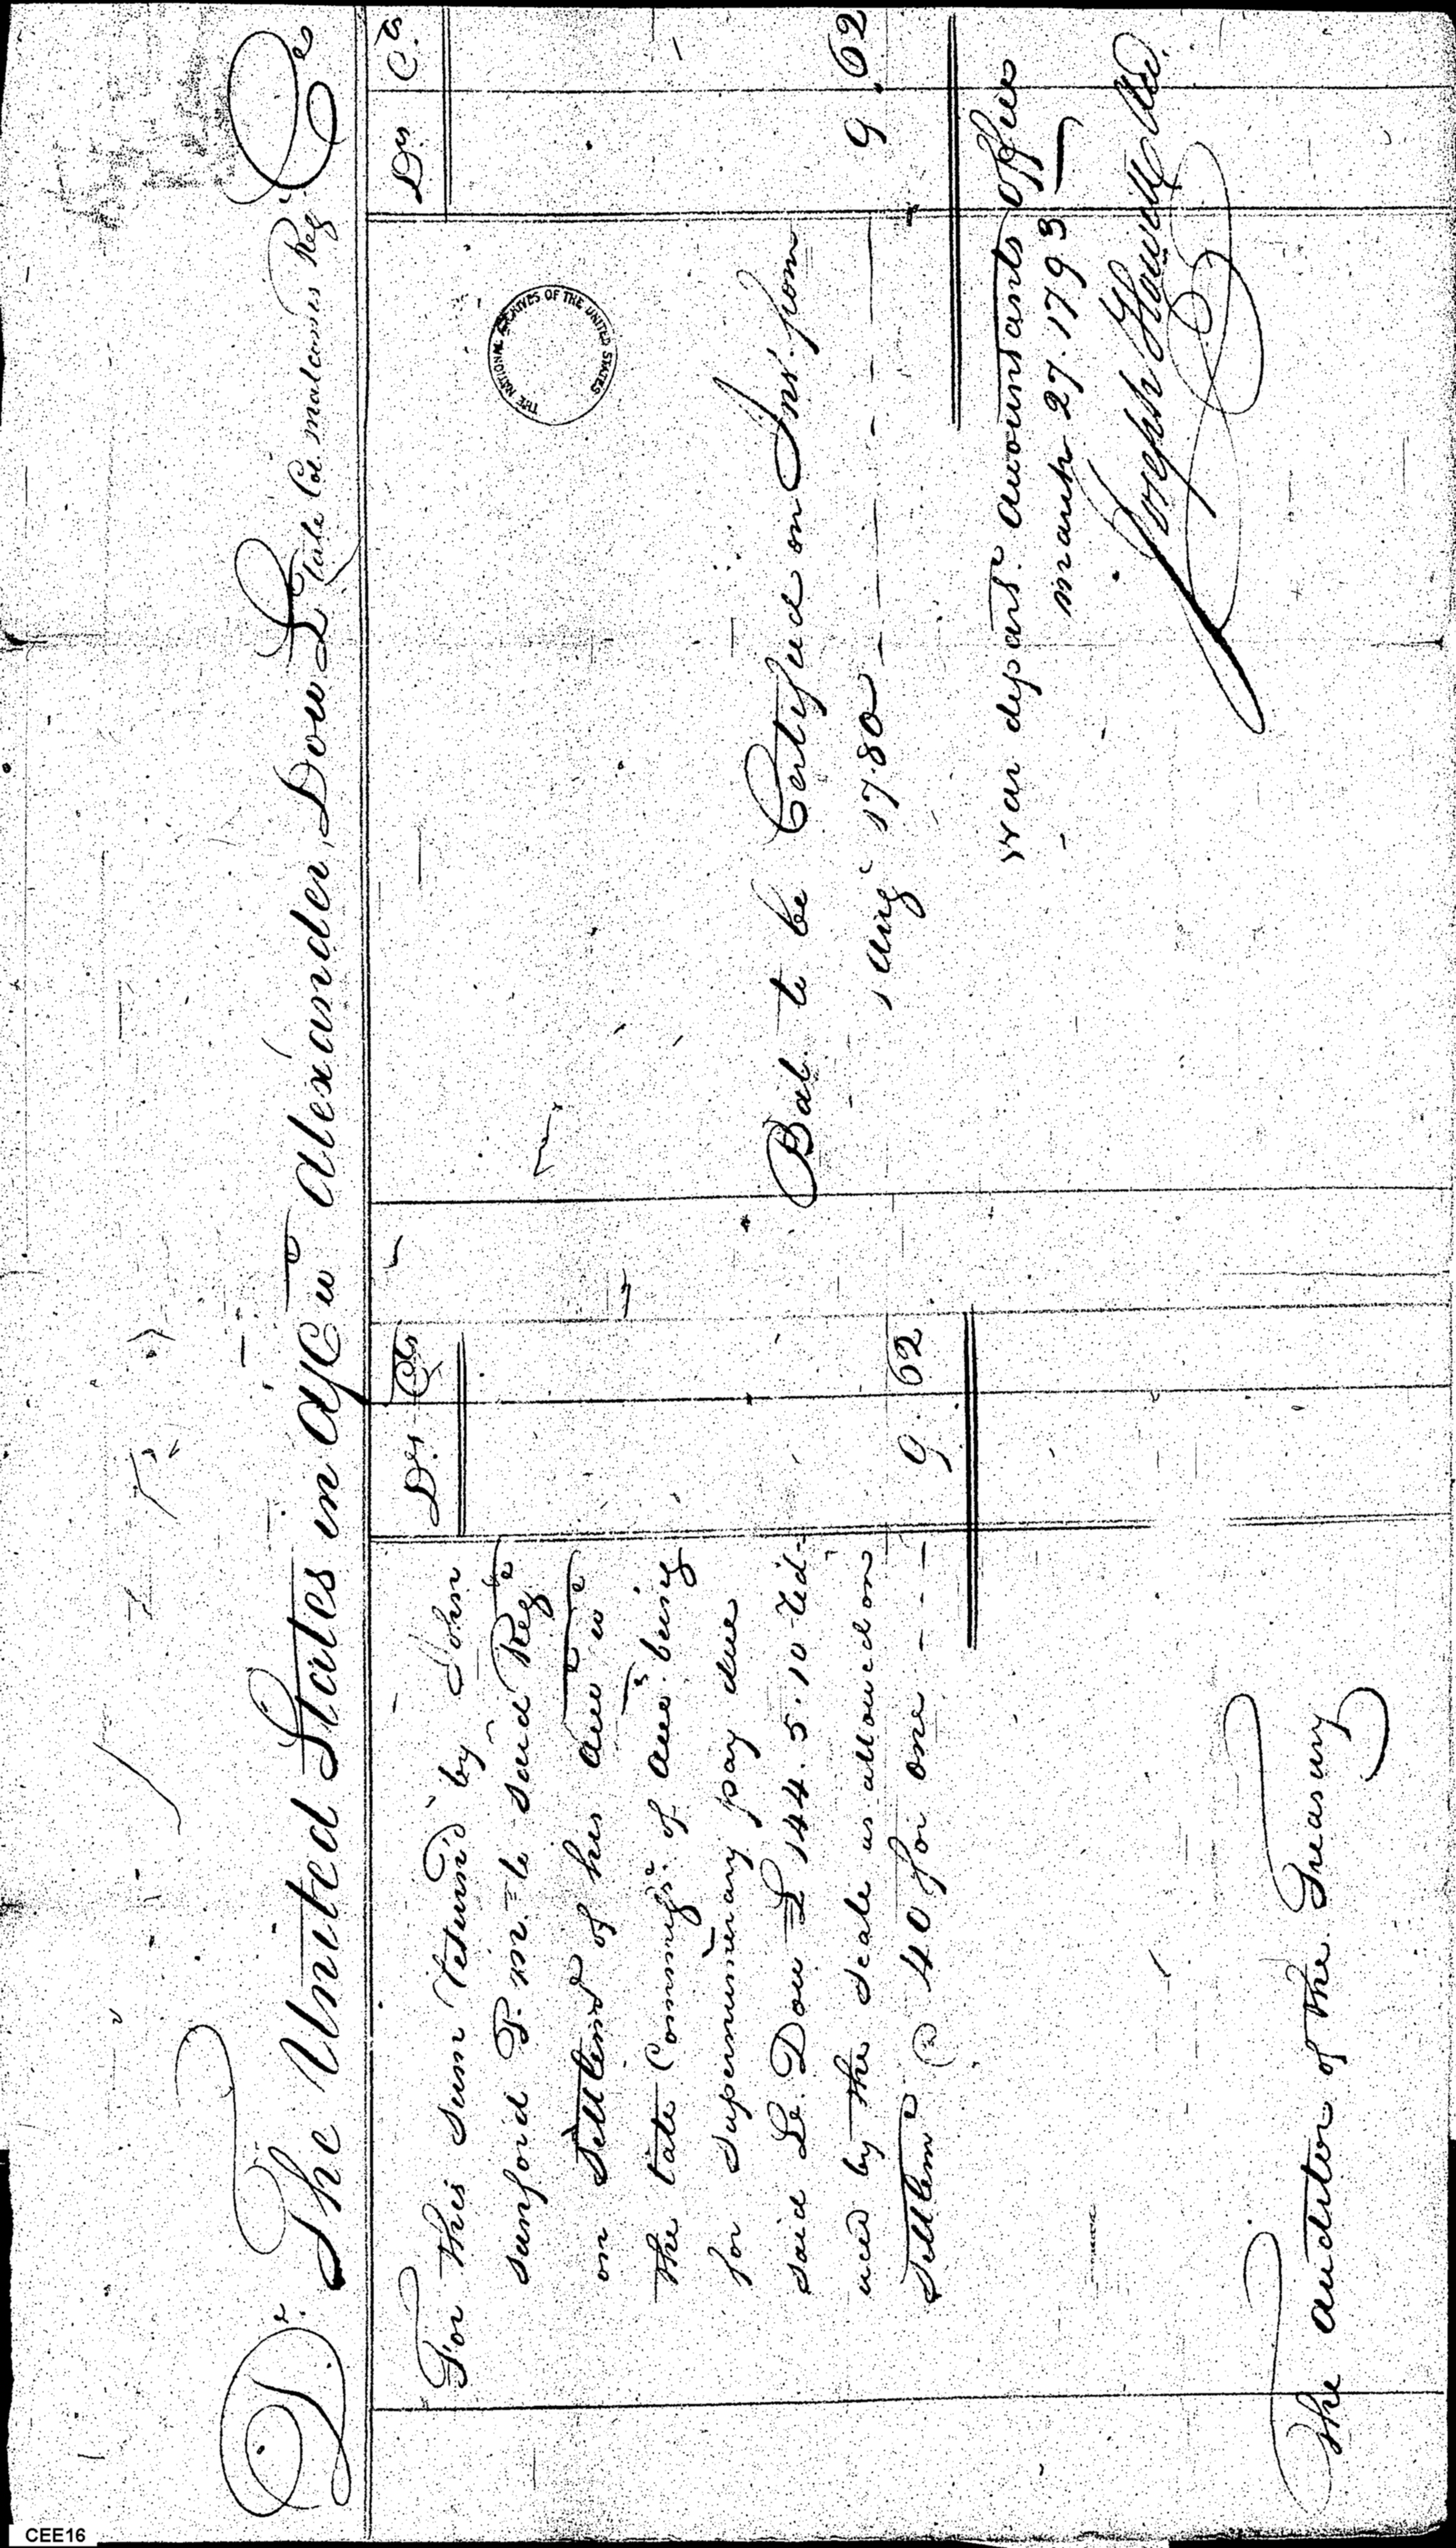 Dr. The United States in a/c wt. Alexander Dow Lt. late Col. Malcoms Regt. Cr
Ds. Cts
For this sum return'd by John
Sanford P. M. to said Regt.
on Settlemt. of his Acct. wt.
the late Commissr. of Accts. being
for Supernumerary pay due
said Lt. Dow £ 144.5.10 red-
uced by the scale as allowed on
Settlemt. @ 40 for one - - - 9. 62
The auditor of the Treasury
Ds. Cts
THE NATIONAL ARCHIVES OF THE UNITED STATES
Bal. to be Certified on Int. from
1 Augt. 1780 - - - - - 9. 62
War departt. accountants office
March 27. 1793
Joseph Howell
CEE16